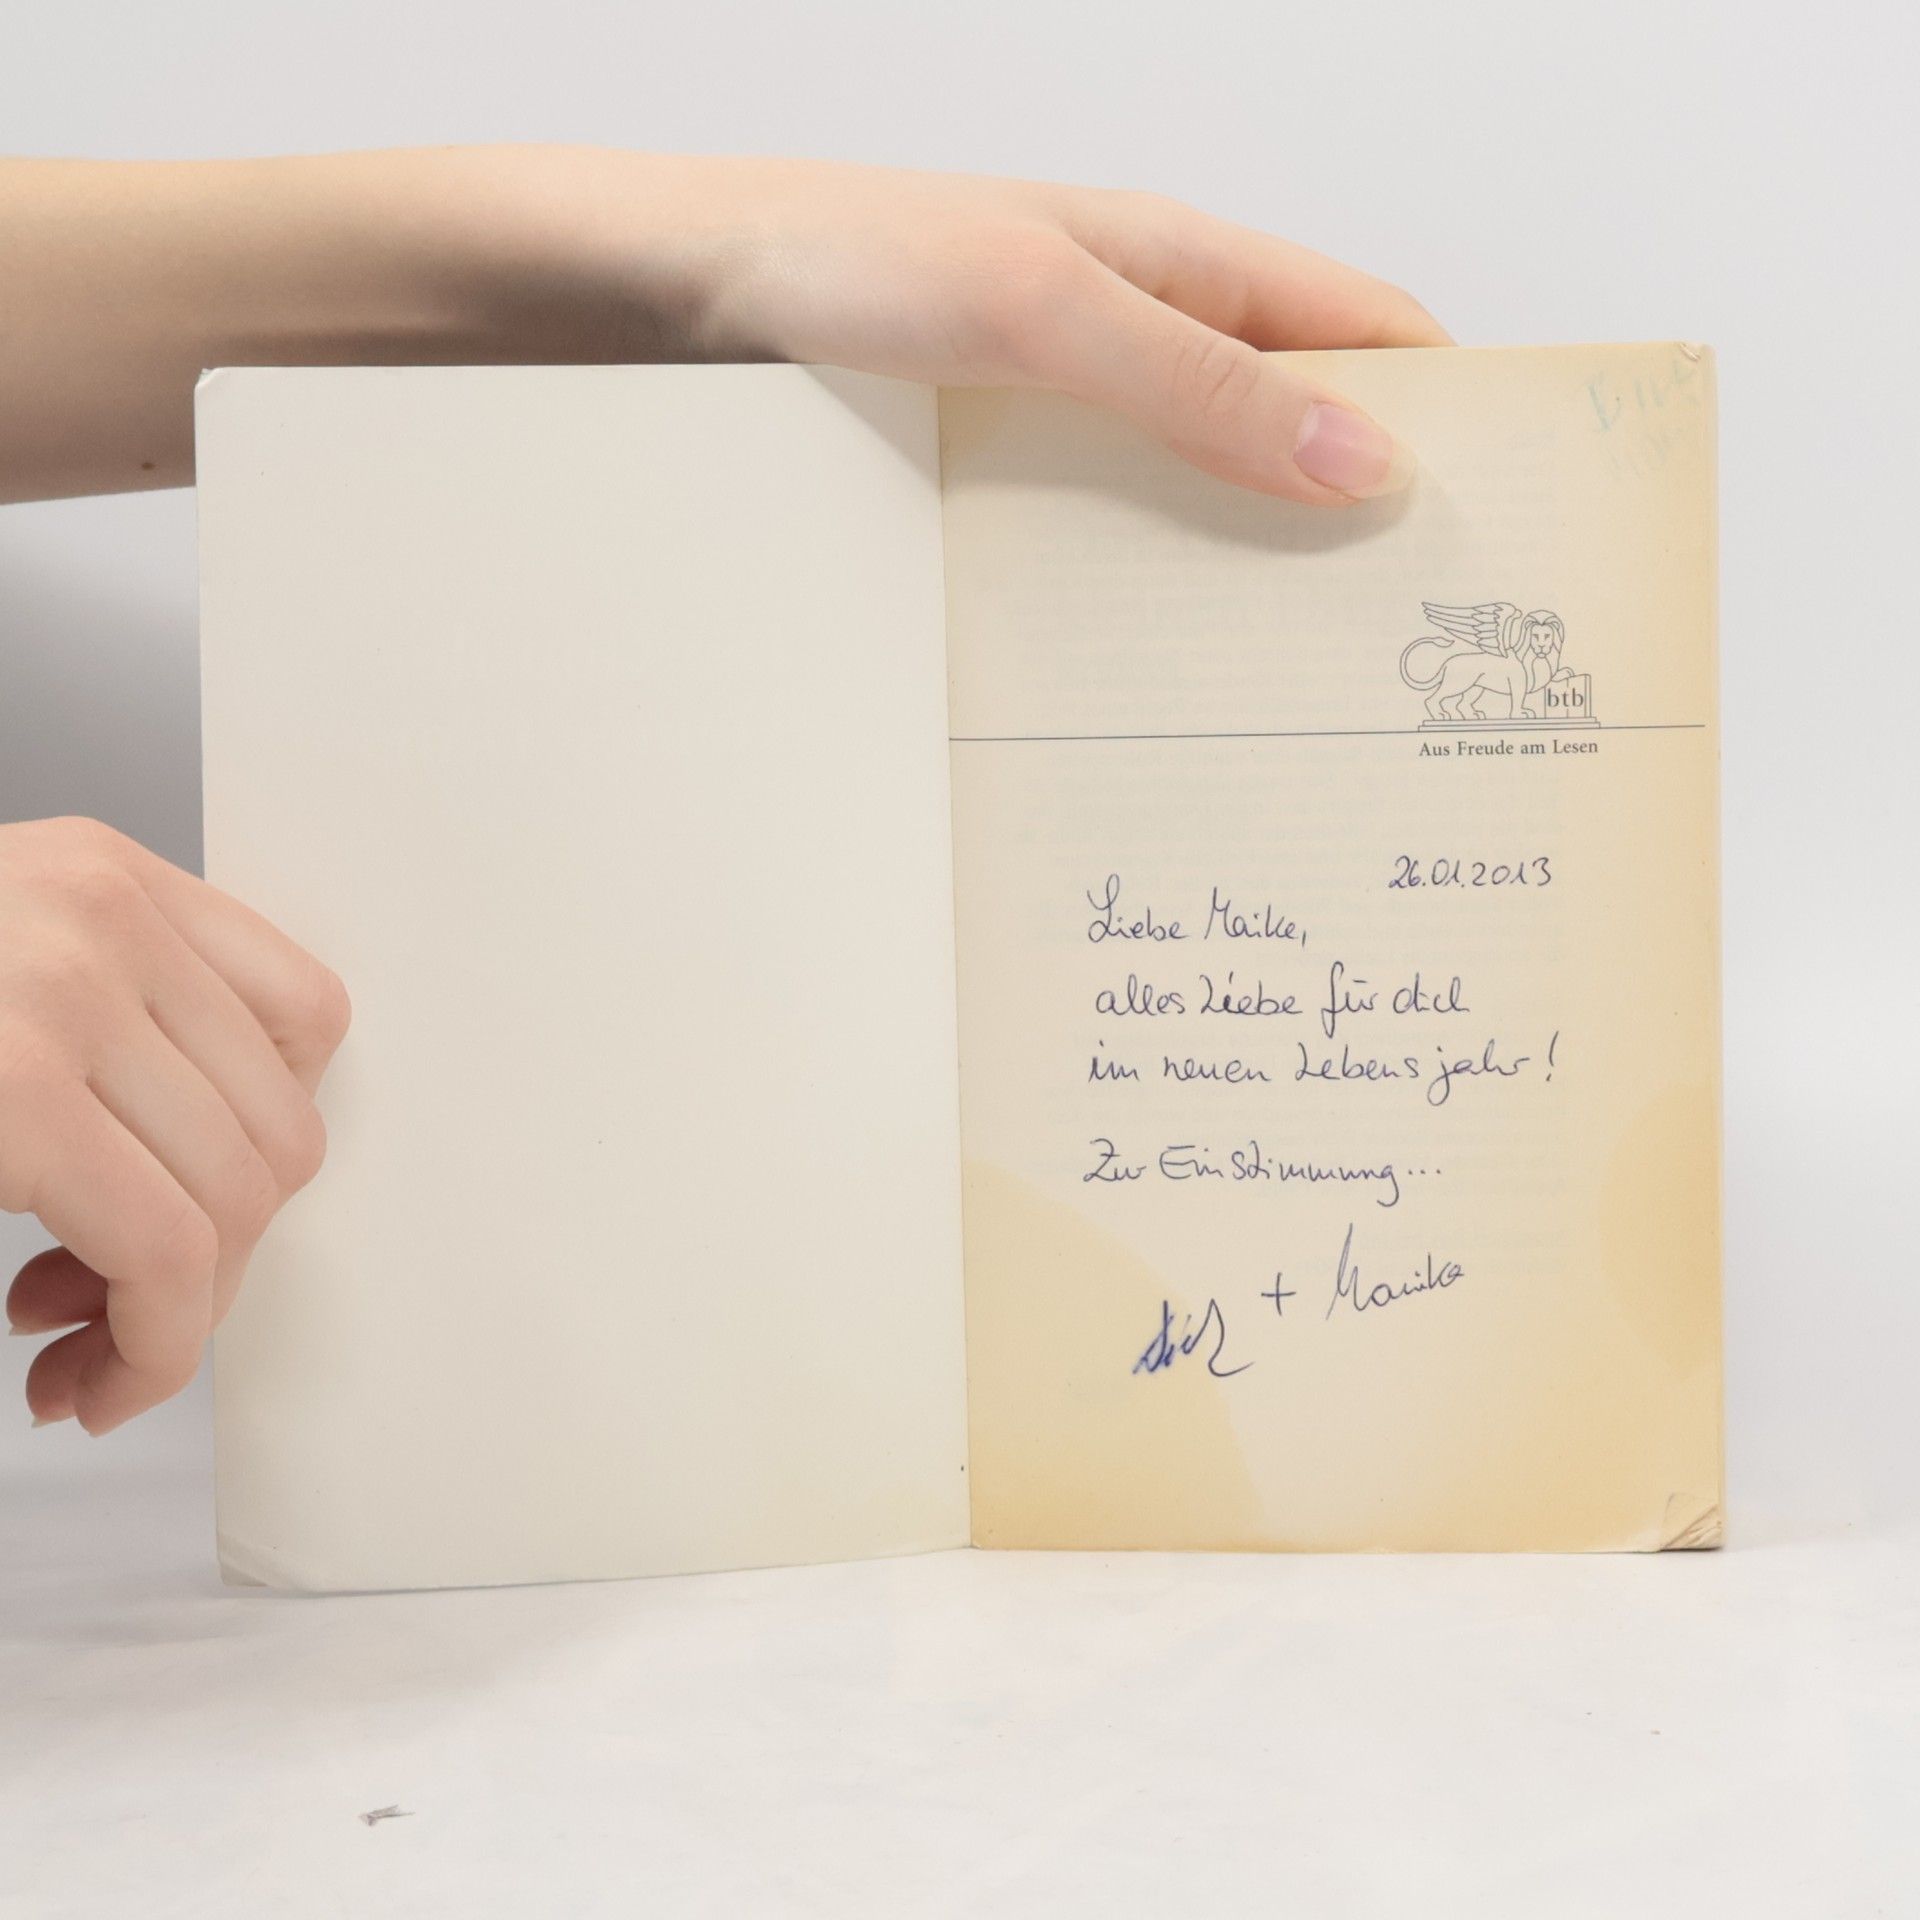 btb
Aus Freude am Lesen
26.01.2013
Liebe Maike,
alles Liebe für dich
im neuen Lebensjahr!
Zur Einstimmung...
+ Mariuka